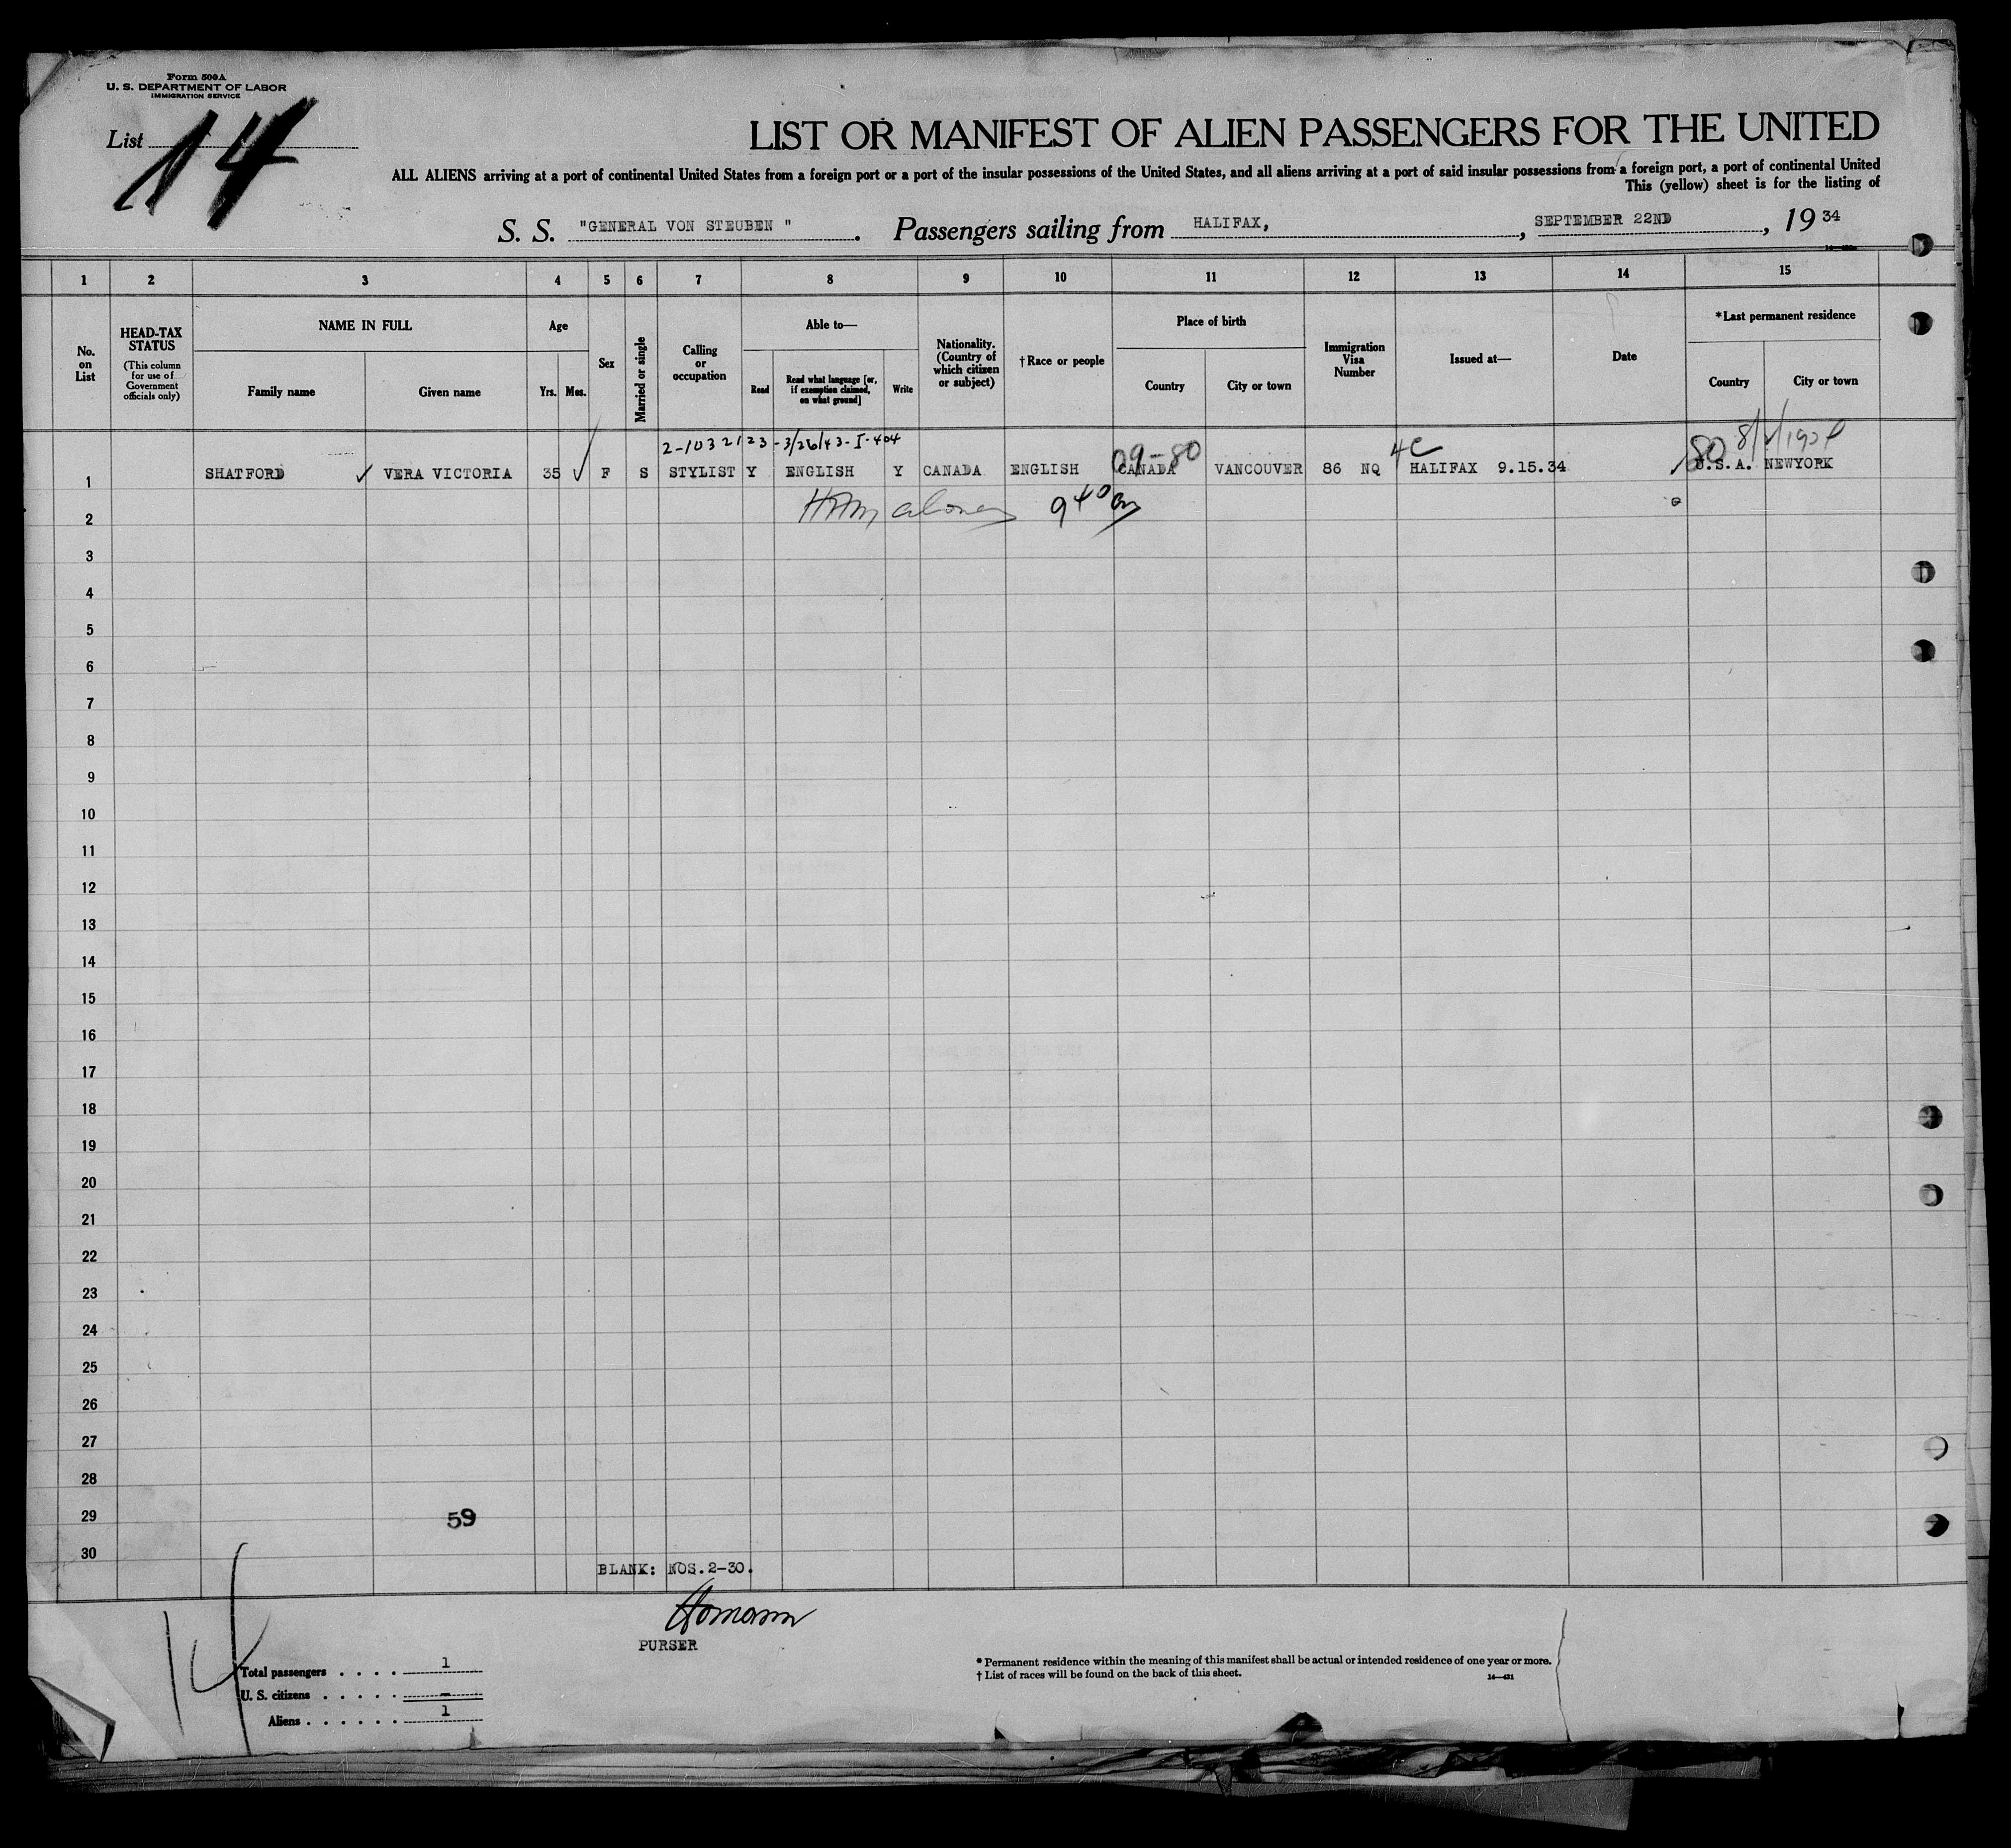 Form 500A
U. S. DEPARTMENT OF LABOR
IMMIGRATION SERVICE
List 14
LIST OR MANIFEST OF ALIEN PASSENGERS FOR THE UNITED
ALL ALIENS arriving at a port of continental United States from a foreign port or a port of the insular possessions of the United States, and all aliens arriving at a port of said insular possessions from a foreign port, a port of continental United
This (yellow) sheet is for the listing of
S. S. "GENERAL VON STEUBEN ". Passengers sailing from HALIFAX, , SEPTEMBER 22ND , 19 34
1 2 3 4 5 6 7 8 9 10 11 12 13 14 15
No. on List
HEAD-TAX STATUS
(This column for use of Government officials only)
NAME IN FULL
Family name
Given name
Age
Yrs. Mos.
Sex
Married or single
Calling or occupation
Able to—
Read
Read what language [or, if exemption claimed, on what ground]
Write
Nationality. (Country of which citizen or subject)
†Race or people
Place of birth
Country
City or town
Immigration Visa Number
Issued at—
Date
*Last permanent residence
Country
City or town
2-1032123-3/26/43-I-404
09-80
4C
80
1 SHATFORD ✓ VERA VICTORIA 35 ✓ F S STYLIST Y ENGLISH Y CANADA ENGLISH CANADA VANCOUVER 86 NQ HALIFAX 9.15.34 U.S.A. NEWYORK
2
3
4
5
6
7
8
9
10
11
12
13
14
15
16
17
18
19
20
21
22
23
24
25
26
27
28
29 59
30
BLANK: NOS.2-30.
Homann
PURSER
14
Total passengers . . . . 1
U. S. citizens . . . . . —
Aliens . . . . . . 1
* Permanent residence within the meaning of this manifest shall be actual or intended residence of one year or more.
† List of races will be found on the back of this sheet.